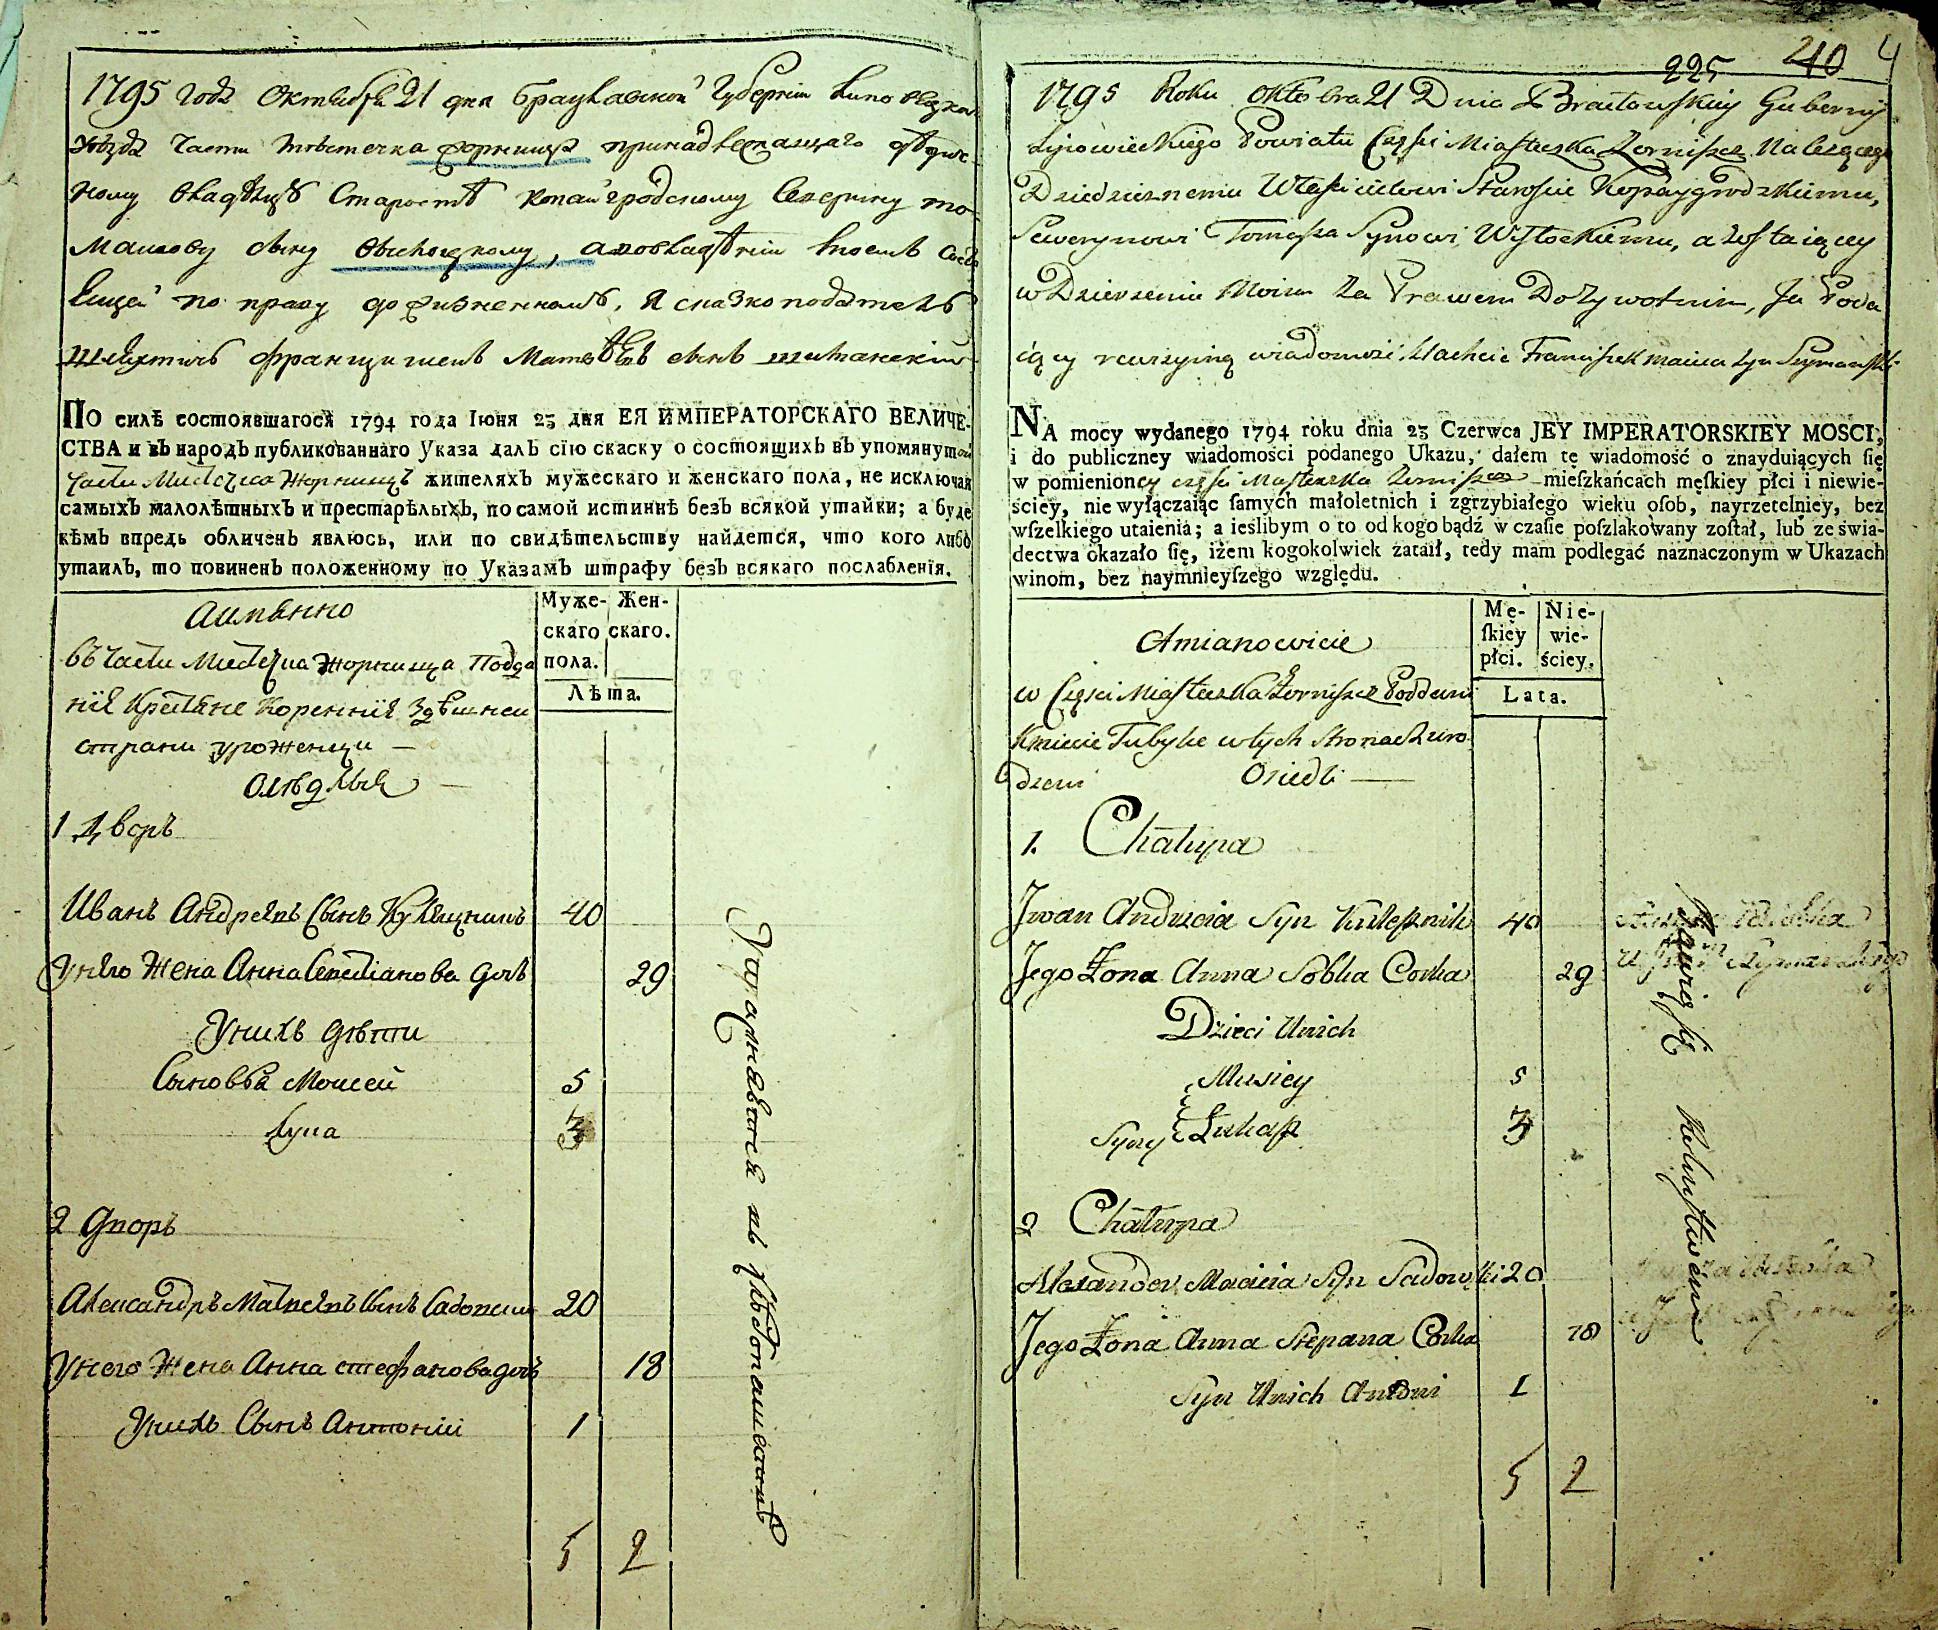 1795 года Октября 21 дня Брацлавской Губернии Липовецкаго
уезда Части местечка Жорнищъ принадлежащаго отдис-
ному владѣлцѣ Старостѣ Копайгродскому Северину То-
машову сыну Высоцкому, а повладѣнии
по праву до жизненномъ, Я сказкоподатель
шляхтичъ Францишекъ Матвѣевъ сынъ Шиманский
По силѣ состоявшагося 1794 года Іюня 23 дня ЕЯ ИМПЕРАТОРСКАГО ВЕЛИЧЕ-
СТВА и въ народъ публикованнаго Указа далъ сію скаску о состоящихъ въ упомянутой
части Местечка Жорнищъ жителяхъ мужескаго и женскаго пола, не исключая
самыхъ малолѣтныхъ и престарѣлыхъ, по самой истиннѣ безъ всякой утайки; а буде
кѣмъ впредь обличенъ явлюсь, или по свидѣтельству найдется, что кого либо
утаилъ, то повиненъ положенному по Указамъ штрафу безъ всякаго послабленія.
Аимянно
въ части Местечка Жорнища Подда
ніе Крестяне Кореннiе Здѣшней
страни уроженци —
Оседлыя —
Муже- Жен-
скаго скаго.
пола.
Лѣта.
1 Дворъ
Иванъ Андреевъ Сынъ Кулешникъ 40
Унего Жена Анна дочъ 29
Унихъ дѣти
Сыновья Моисей 5
Лука 3
2 Дворъ
Александръ Матвеевъ сынъ Садовски 20
Унего Жена Анна Стефанова дочъ 18
Унихъ Сынъ Антоній 1
5 2
225 240 4
1795 Roku Oktobra 21 Dnia w Bracławskiey Gubernij
Lipowieckiego Powiatu Części Miasteczka Żorniszcz Należącego
Dziedzicznemu Właścicielowi Staroście Kopaygrodzkiemu,
Sewerynowi Tomasza Synowi Wysłockiemu, a zostaiącey
w Dzierżeniu Moim Za Prawem Dożywotnim, Ja Poda
iący rewizyiną wiadomość Szlachcic Franciszek Macieia syn Szymański
NA mocy wydanego 1794 roku dnia 23 Czerwca JEY IMPERATORSKIEY MOSCI,
i do publiczney wiadomości podanego Ukazu, dałem tę wiadomość o znayduiących ſię
w pomienioney części Miasteczka Żorniszcz mieſzkańcach męſkiey płci i niewie-
ściey, nie wyłączaiąc ſamych małoletnich i zgrzybiałego wieku oſob, nayrzetelniey, bez
wſzelkiego utaienia; a ieślibym o to od kogo bądź w czaſie poſzlakowany zoſtał, lub ze świa-
dectwa okazało ſię, iżem kogokolwiek zataił, tedy mam podlegać naznaczonym w Ukazach
winom, bez naymnieyſzego względu.
Amianowicie
w Części Miasteczka Żorniszcz Poddani
Kmiecie Tubylce wtych Stronach uro
dzeni Osiedli —
Mę-
ſkiey
płci.
Nie-
wie-
ściey.
Lata.
1. Chałupa
Iwan Andrzeia Syn Kulesznik 40
Jego Żona Anna Sobka Corka 29
Dzieci Unich
Musiey 5
Syny Łukasz 3
2 Chałupa
Alexander Macieia Syn Sadowski 20
Jego Żona Anna Stepana Corka 18
Syn Unich Antoni 1
5 2